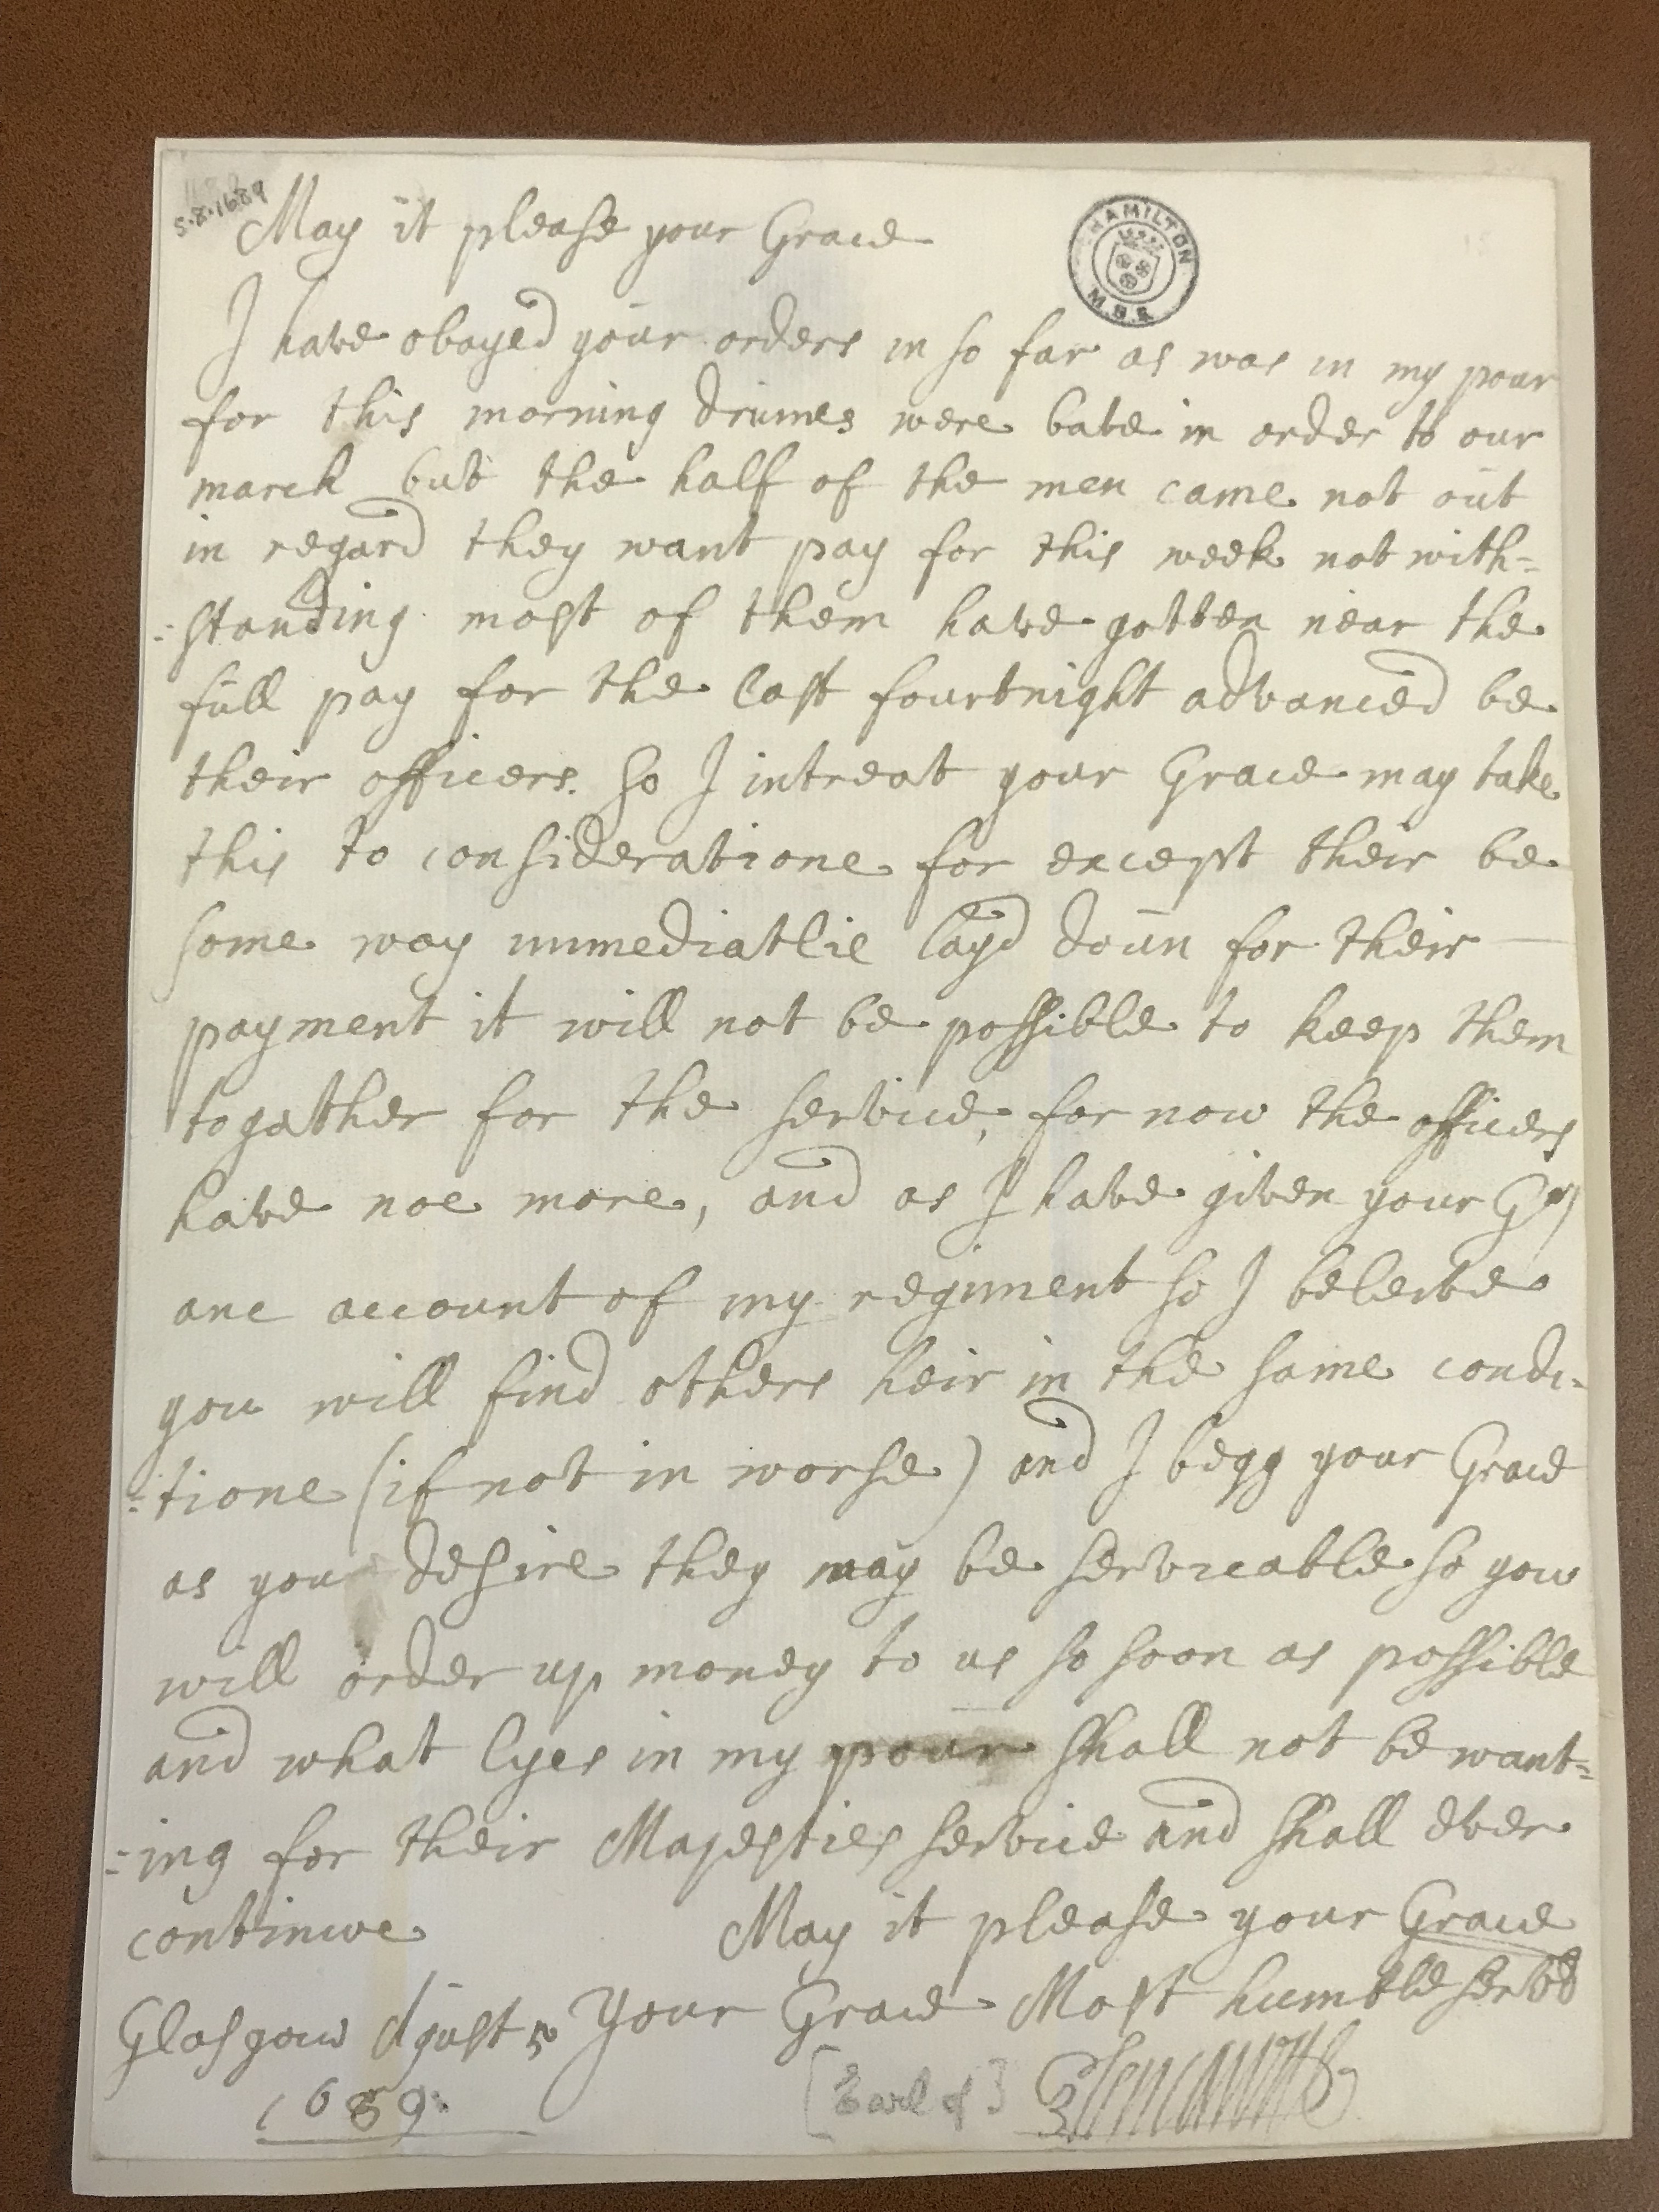 5.8.1689
May it please your Grace
HAMILTON
M.S.S.
I have obayed your orders in so far as was in my pour
for this morning drumes were bate in order to our
march but the half of the men came not out
in regard they want pay for this week not with=
=standing most of them have gotten near the
full pay for the last fourtnight advanced be
their officers. So I intreat your Grace may take
this to consideratione for except their be
some way immediatlie layd doun for their
payment it will not be possible to keep them
togather for the service, for now the officers
have noe more, and as I have given your Gr/
ane account of my regiment so I beleive
you will find others heir in the same condi=
=tione (if not in worse) and I begg your Grace
as you desire they may be servicable so you
will order up money to us so soon as possible
and what lyes in my pour shall not be want=
=ing for their Majesties service and shall ever
continwe May it please your Grace
Glasgow Agust 5 Your Grace Most humble
1689: [Earl of] Glencairne